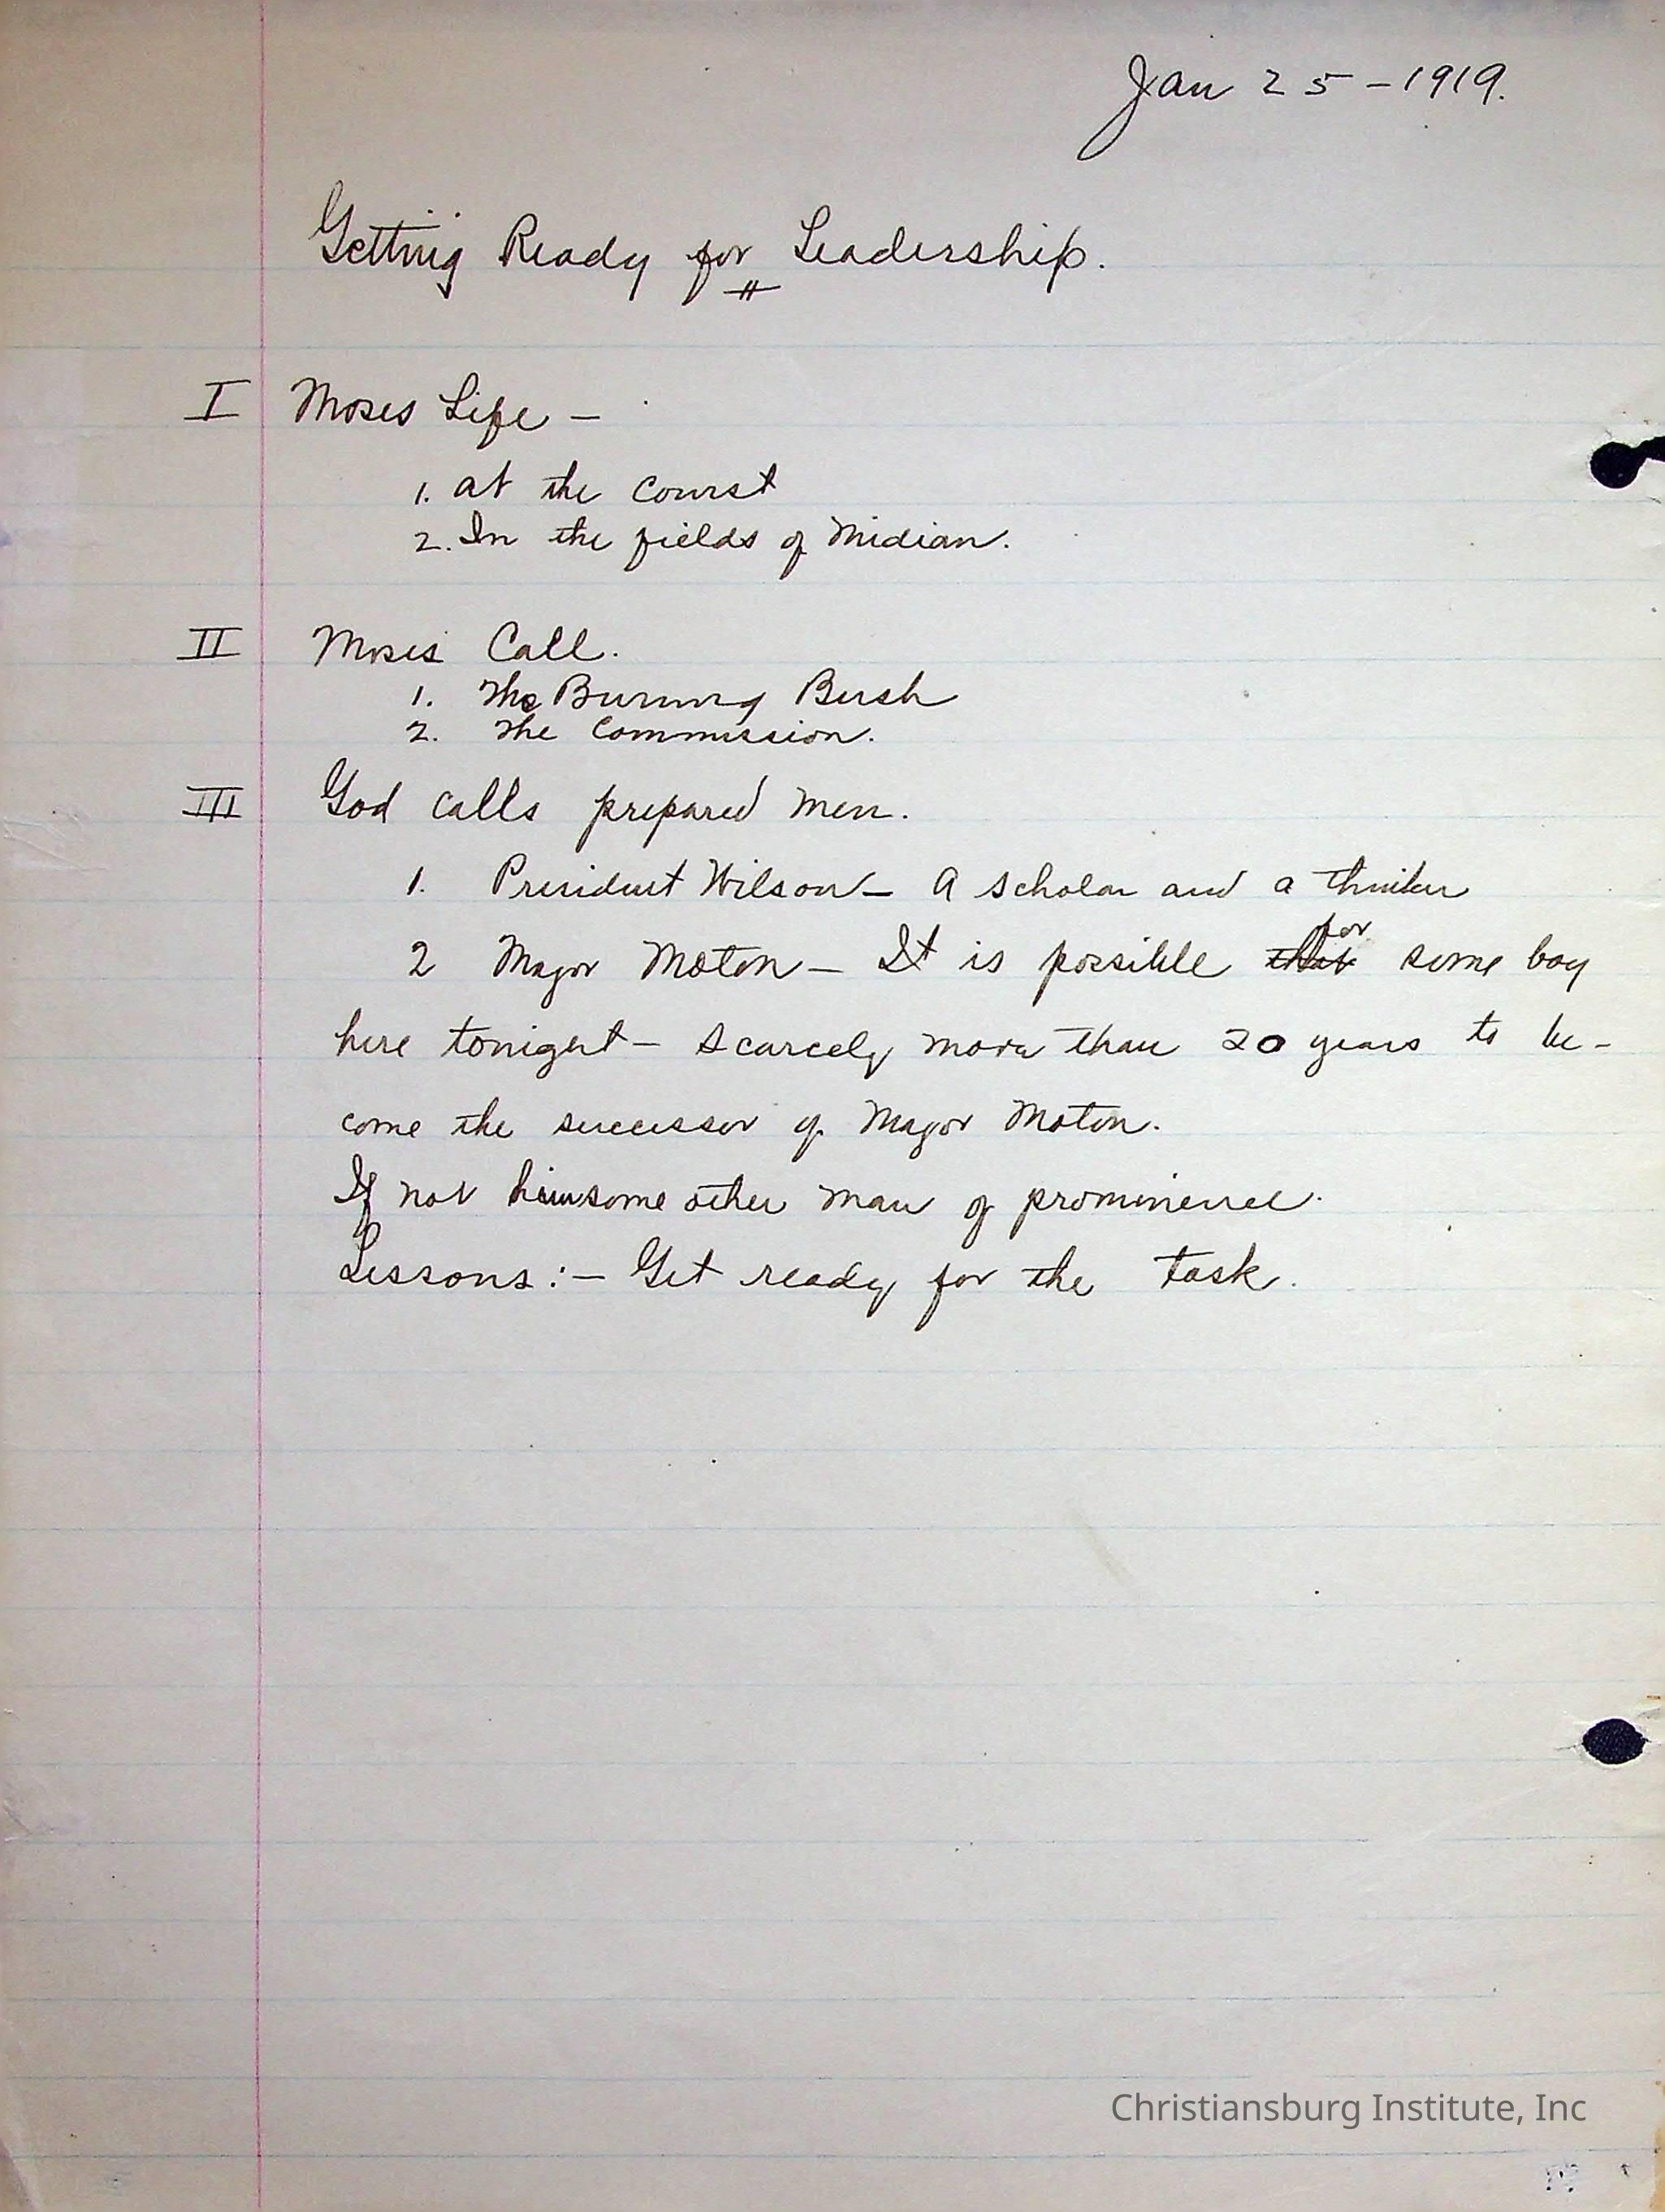 Jan 25-1919.
Getting Ready for Leadership.
I Moses Life -
1. at the Court
2. In the fields of Midian.
II Moses Call.
1. The Burning Bush
2. The Commission.
III God calls prepared men.
1. President Wilson - A scholar and a thinker
for
2 Major Moton - It is possible that some boy
here tonight - scarcely more than 20 years to be-
come the successor of Major Moton.
If not him some other man of prominence.
Lessons:- Get ready for the task.
Christiansburg Institute, Inc